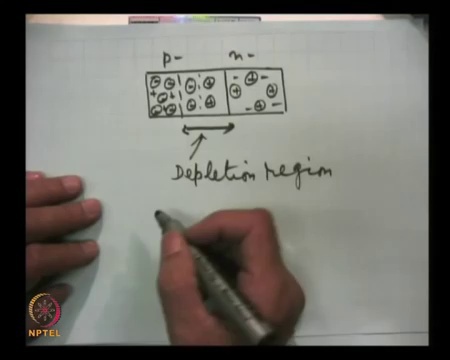 p- n-
Depletion region
NPTEL